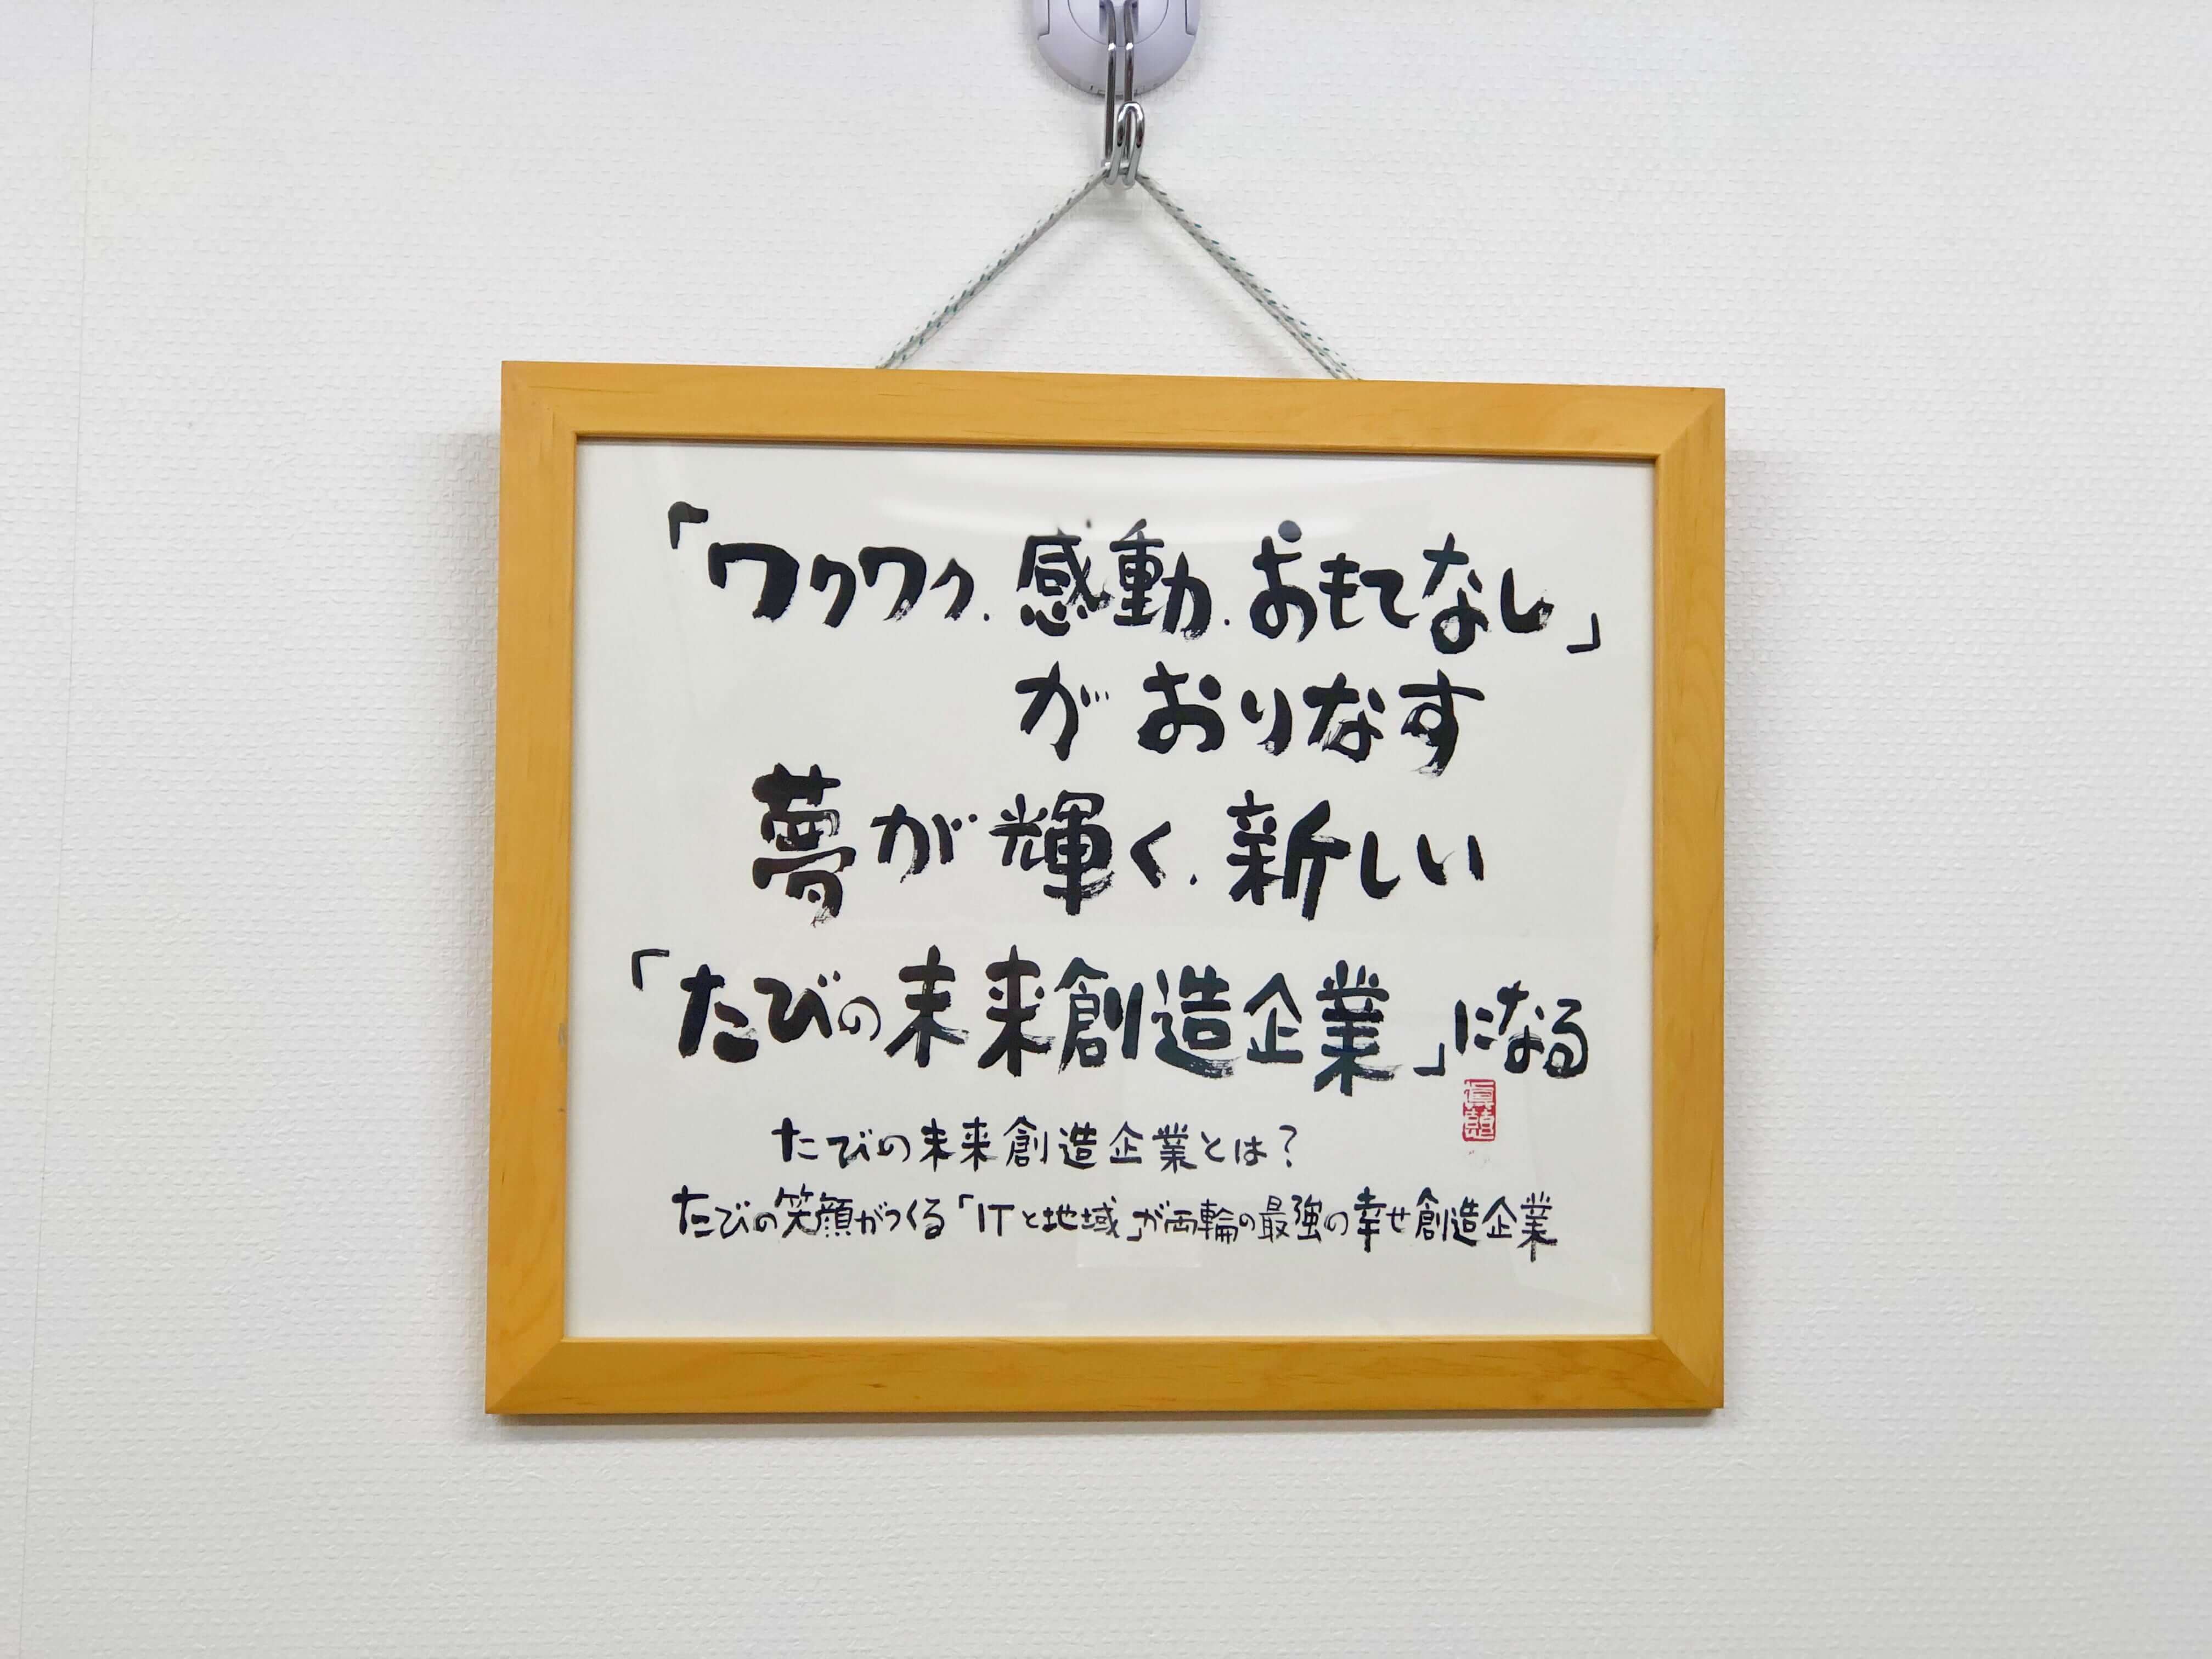 「ワクワク.感動.おもてなし」
がおりなす
夢が輝く.新しい
「たびの未来創造企業」になる
たびの未来創造企業とは?
たびの笑顔がつくる「ITと地域」が両輪の最強の幸せ創造企業